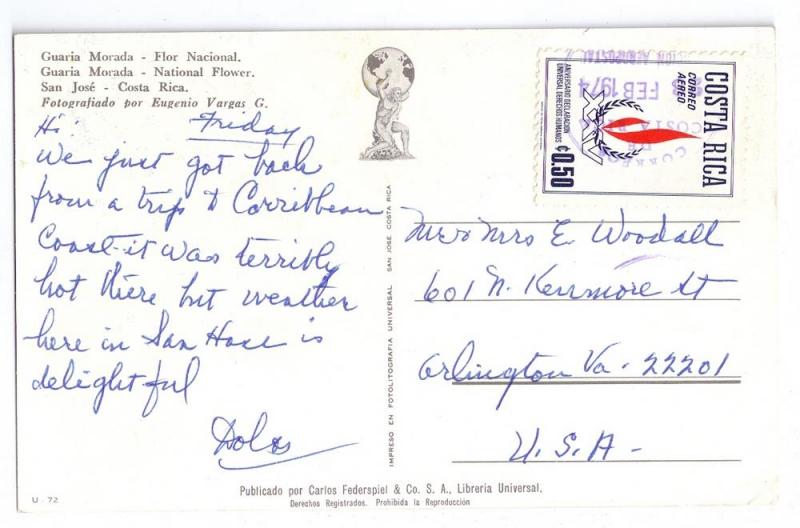 Guaria Morada - Flor Nacional.
Guaria Morada - National Flower.
San José - Costa Rica.
Fotografiado por Eugenio Vargas G.
Hi! Friday
We just got back
from a trip to Carribbean
Coast-it was terribly
hot there but weather
here in San Hose is
delightful
U - 72
IMPRESO EN FOTOLITOGRAFIA UNIVERSAL SAN JOSE COSTA RICA
COSTA RICA
CORREO
AEREO
ANIVERSARIO DECLARACION
UNIVERSAL DERECHOS HUMANOS
XXV
¢0.50
FEB 1974
CORREOS
COSTA RICA
Mr & Mrs E. Woodall
601 N. Kenmore St
Arlington Va. 22201
U.S.A.
Publicado por Carlos Federspiel & Co. S. A., Libreria Universal.
Derechos Registrados. Prohibida la Reproducción